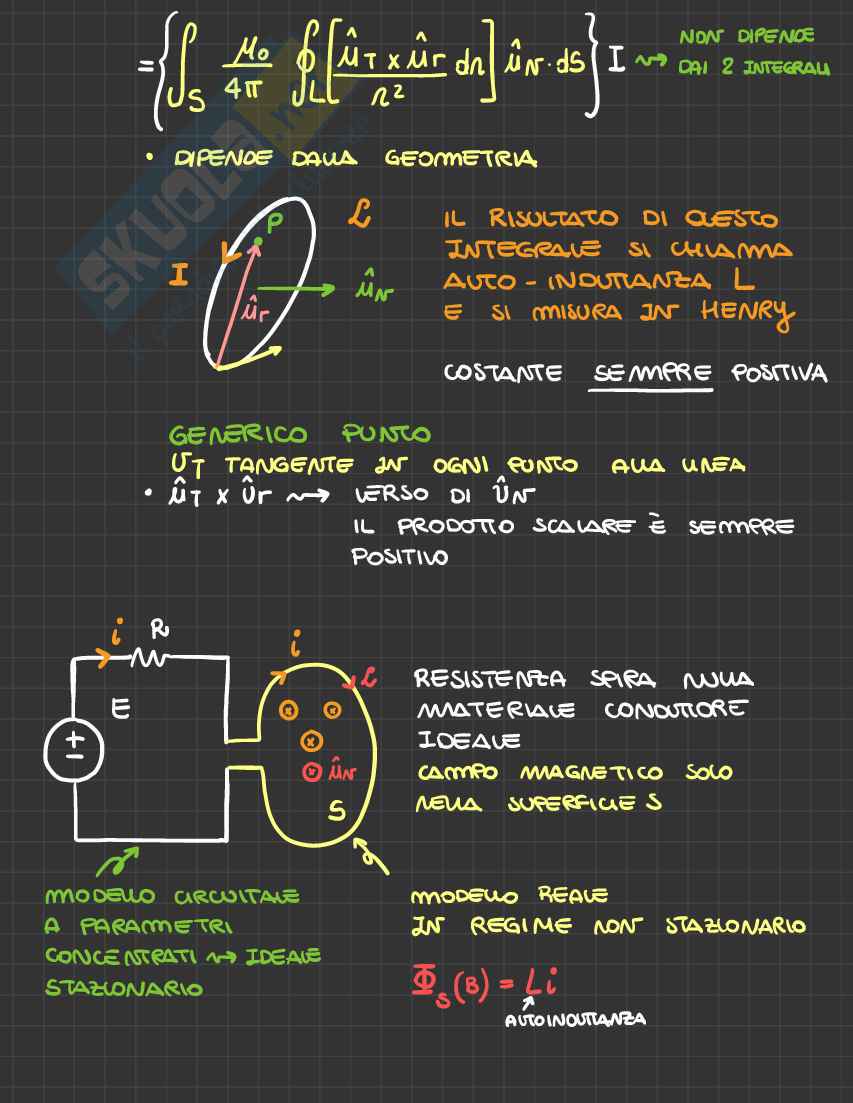 = { ∫S μ0/4π ∮L [ ûT x ûr / r² dr ] ûN · dS } I ⇝ NON DIPENDE
DAI 2 INTEGRALI
• DIPENDE DALLA GEOMETRIA
P
L
I
ûN
ûr
IL RISULTATO DI QUESTO
INTEGRALE SI CHIAMA
AUTO - INDUTTANZA L
E SI MISURA IN HENRY
COSTANTE SEMPRE POSITIVA
GENERICO PUNTO
UT TANGENTE IN OGNI PUNTO ALLA LINEA
• ûT x ûr ⇝ VERSO DI ûN
IL PRODOTTO SCALARE È SEMPRE
POSITIVO
i
R
E
+
−
i
L
ûN
S
RESISTENZA SPIRA NULLA
MATERIALE CONDUTTORE
IDEALE
CAMPO MAGNETICO SOLO
NELLA SUPERFICIE S
MODELLO CIRCUITALE
A PARAMETRI
CONCENTRATI ⇝ IDEALE
STAZIONARIO
MODELLO REALE
IN REGIME NON STAZIONARIO
ΦS (B) = Li
AUTOINDUTTANZA